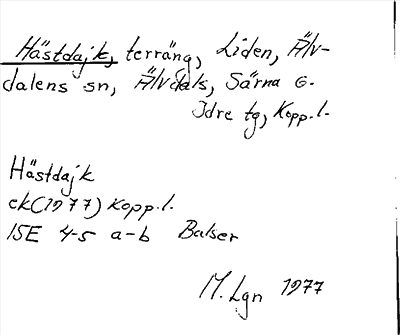 Hästdajk, terräng, Liden, Älv-
dalens sn, Älvdals, Särna o.
Idre tg, Kopp.l.
Hästdajk
ek(1977) Kopp.l.
15E 4-5 a-b Balser
M. Lgn 1977